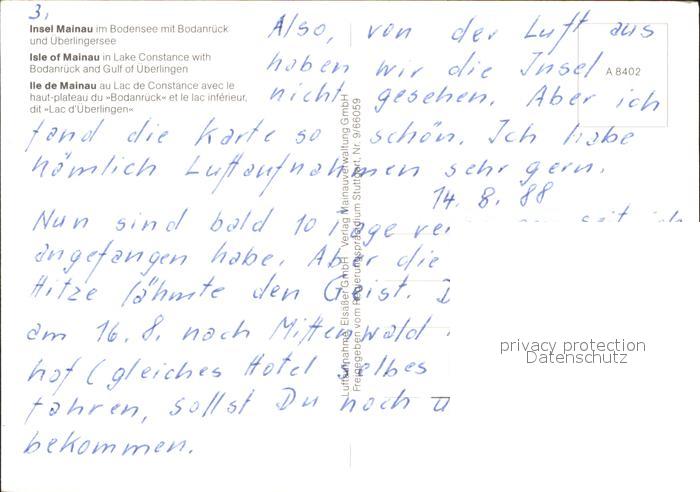 3.
Insel Mainau im Bodensee mit Bodanrück
und Überlingersee
Isle of Mainau in Lake Constance with
Bodanrück and Gulf of Überlingen
Ile de Mainau au Lac de Constance avec le
haut-plateau du »Bodanrück« et le lac inférieur,
dit »Lac d'Überlingen«
A 8402
Also, von der Luft aus
haben wir die Insel
nicht gesehen. Aber ich
fand die Karte so schön. Ich habe
nämlich Luftaufnahmen sehr gern.
14. 8. 88
Nun sind bald 10 Tage seit ich
angefangen habe. Aber die
Hitze lähmte den Geist.
am 16. 8. nach Mittenwald
hof (gleiches Hotel selbes
fahren, sollst Du noch
bekommen.
Luftaufnahme: Elsäßer GmbH Verlag Mainauverwaltung GmbH
Freigegeben vom Regierungspräsidium Stuttgart, Nr. 9/66059
privacy protection
Datenschutz